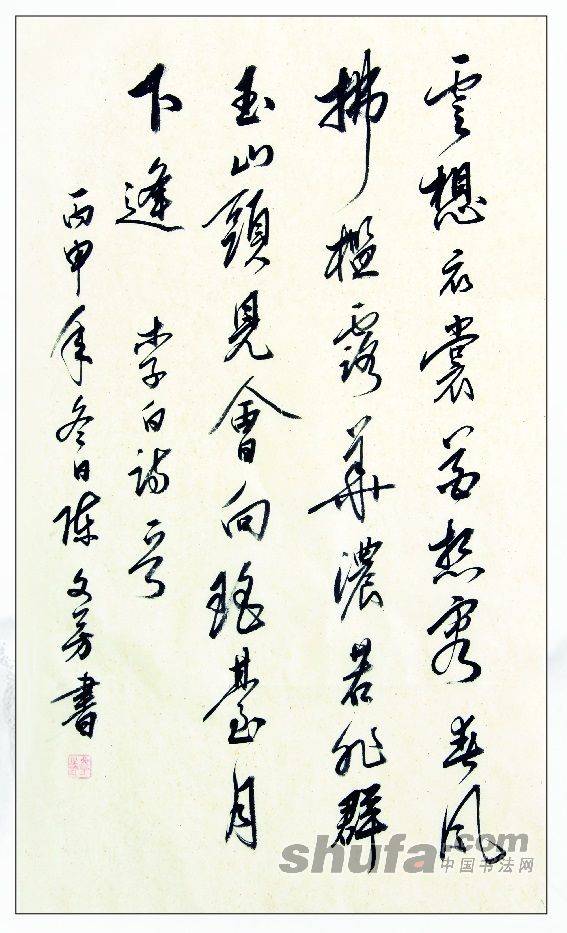 雲想衣裳花想容春風
拂檻露華濃若非群
玉山頭見會向瑤臺月
下逢 李白詩一首
丙申年冬日陳文芳書
shufa.com
中国书法网